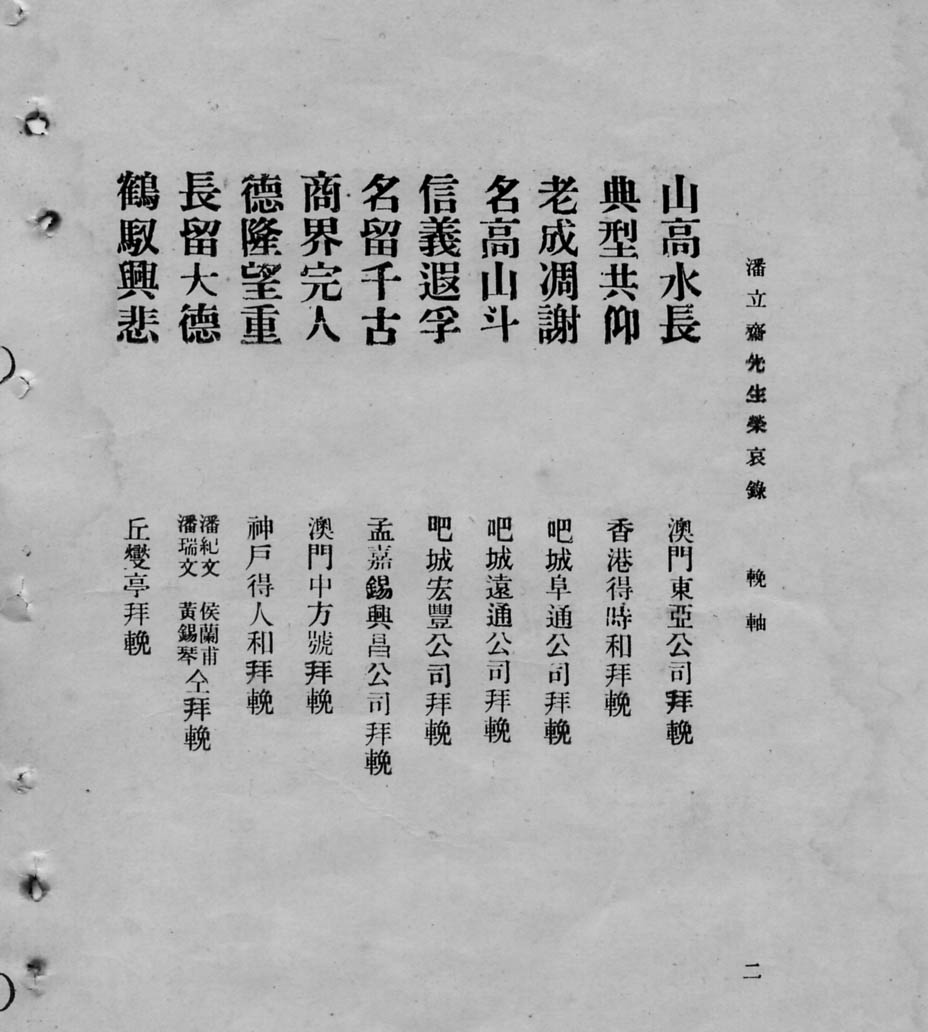 潘立齋先生榮哀錄　輓軸
山高水長　澳門東亞公司拜輓
典型共仰　香港得時和拜輓
老成凋謝　吧城阜通公司拜輓
名高山斗　吧城遠通公司拜輓
信義遐孚　吧城宏豐公司拜輓
名留千古　孟嘉錫興昌公司拜輓
商界完人　澳門中方號拜輓
德隆望重　神戶得人和拜輓
長留大德　潘紀文　潘瑞文　侯蘭甫　黃錫琴　仝拜輓
鶴馭興悲　丘燮亭拜輓
二